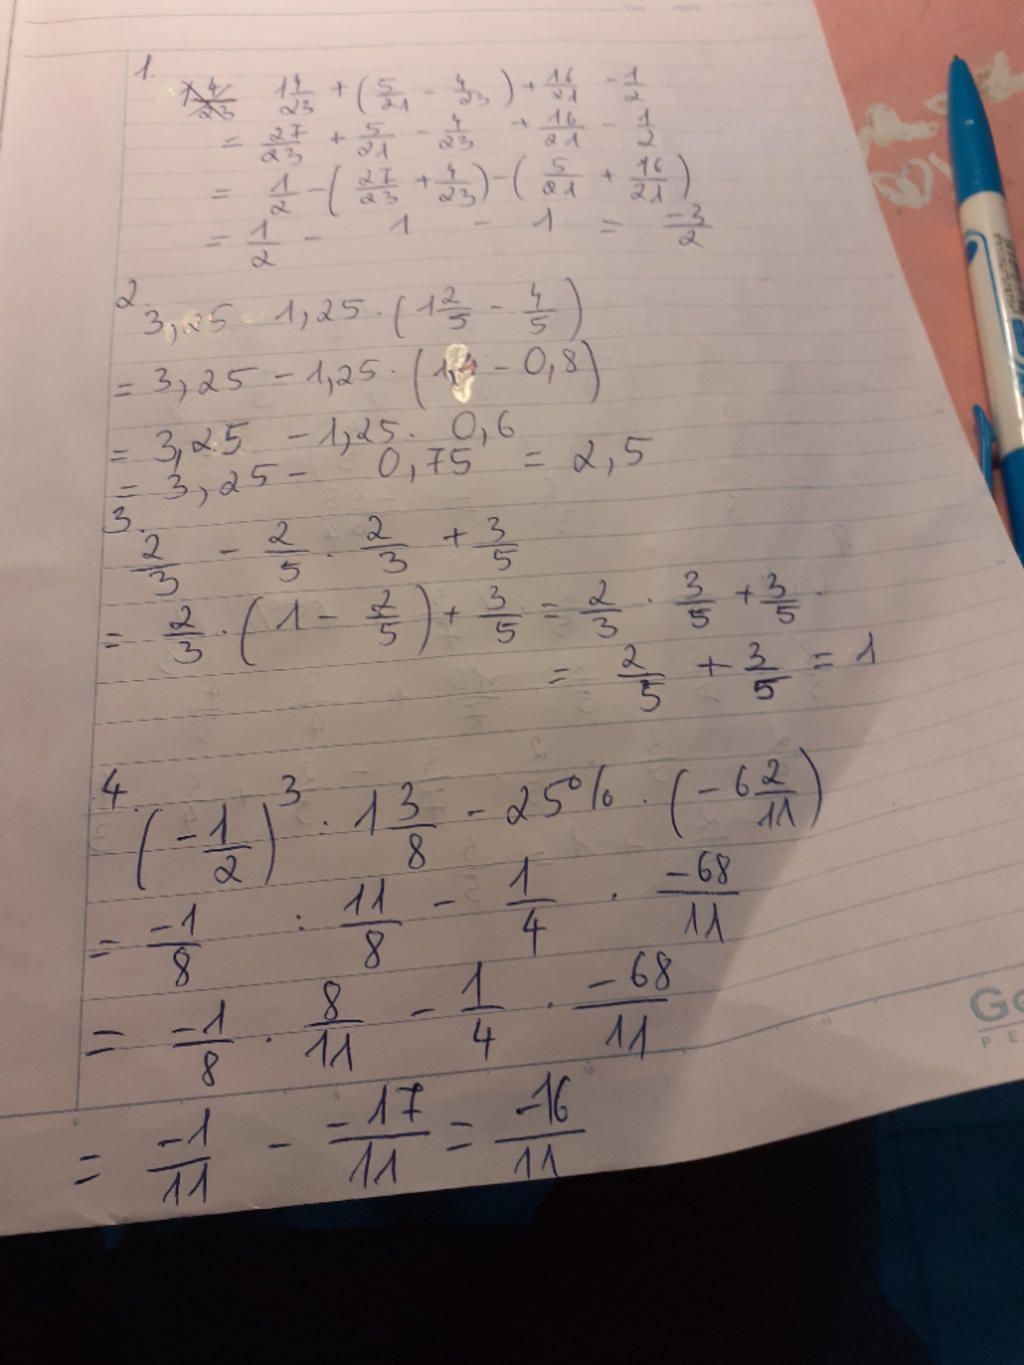 1.
1 4/23 + (5/21 - 4/23) + 16/21 - 1/2
= 27/23 + 5/21 - 4/23 + 16/21 - 1/2
= 1/2 - (27/23 + 4/23) - (5/21 + 16/21)
= 1/2 - 1 - 1 = -3/2
2.
3,25 - 1,25 . (1 2/5 - 4/5)
= 3,25 - 1,25 . (1,4 - 0,8)
= 3,25 - 1,25 . 0,6
= 3,25 - 0,75 = 2,5
3.
2/3 - 2/5 . 2/3 + 3/5
= 2/3 . (1 - 2/5) + 3/5 = 2/3 . 3/5 + 3/5
= 2/5 + 3/5 = 1
4.
(-1/2)^3 . 1 3/8 - 25% . (-6 2/11)
= -1/8 : 11/8 - 1/4 . -68/11
= -1/8 . 8/11 - 1/4 . -68/11
= -1/11 - -17/11 = -16/11